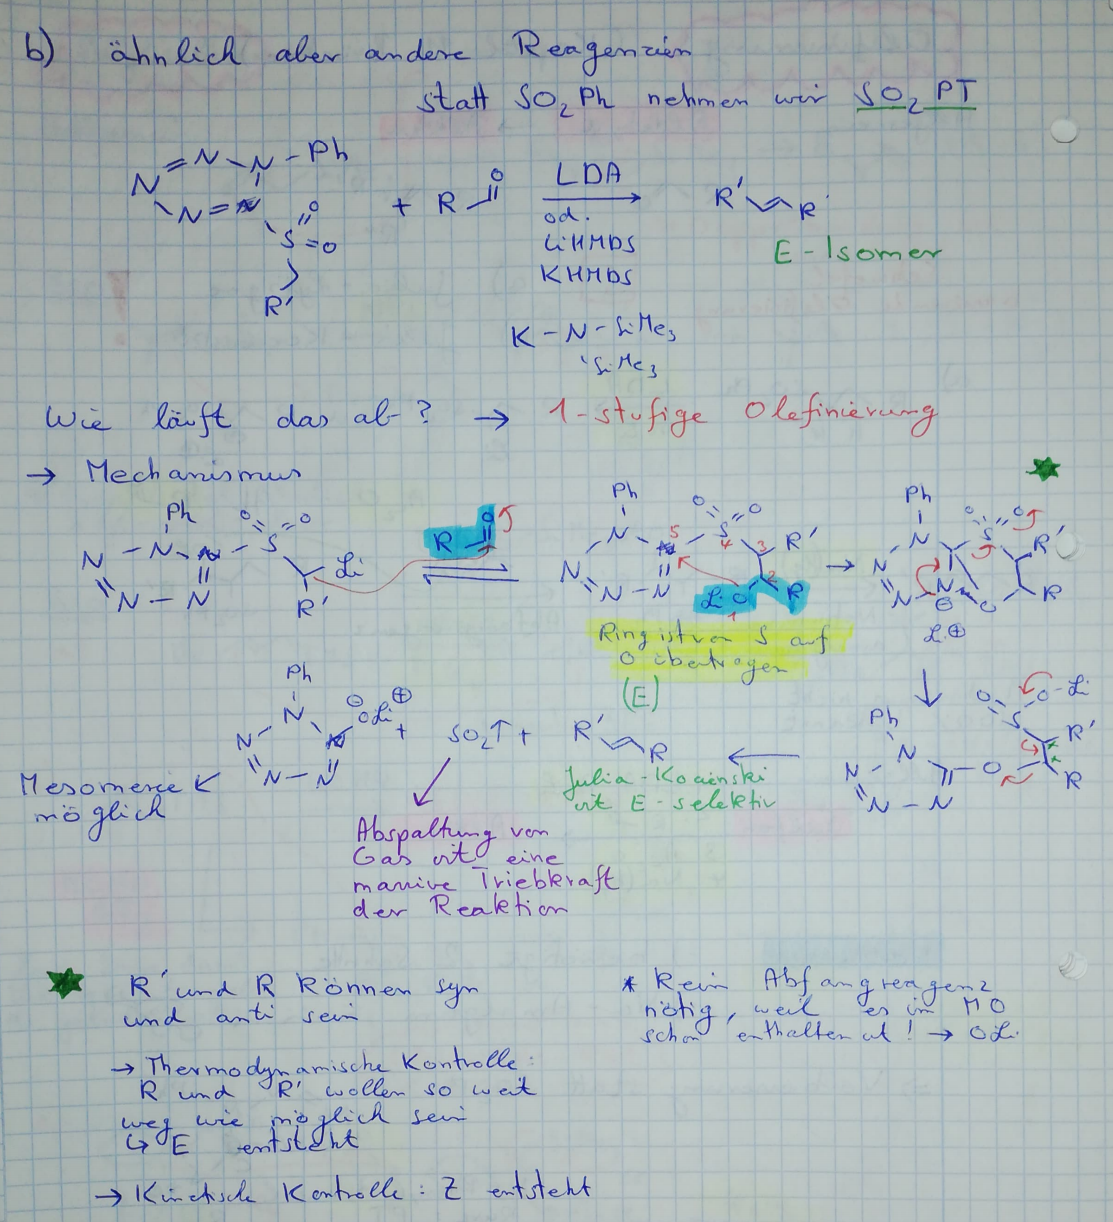 b) ähnlich aber andere Reagenzien
statt SO2Ph nehmen wir SO2PT
N=N-N-Ph
N-N=
S=O
O
R'
+ R O
LDA
od.
LiHMDS
KHMDS
R' R
E-Isomer
K-N-SiMe3
SiMe3
Wie läuft das ab? → 1-stufige Olefinierung
→ Mechanismus
Ph
N-N
N-N
O S O
Li
R'
R O
Ph
N N
N-N
O S O
5 4 3 2 1
R'
LiO R
Ring ist von S auf
O übertragen
Ph
N N
N N
O S O
R'
O R
⊖
Li⊕
Ph
N N
N-N
O
O S O-Li
R'
R
Ph
N N
N-N
⊖ ⊕
OLi
+ SO2↑ +
(E)
R' R
Julia-Kocienski
ist E-selektiv
Mesomerie
möglich
Abspaltung von
Gas ist eine
massive Triebkraft
der Reaktion
R' und R können syn
und anti sein
→ Thermodynamische Kontrolle:
R und R' wollen so weit
weg wie möglich sein
↳ E entsteht
→ Kinetische Kontrolle: Z entsteht
* Kein Abfangreagenz
nötig, weil es im MO
schon enthalten ist! → OLi